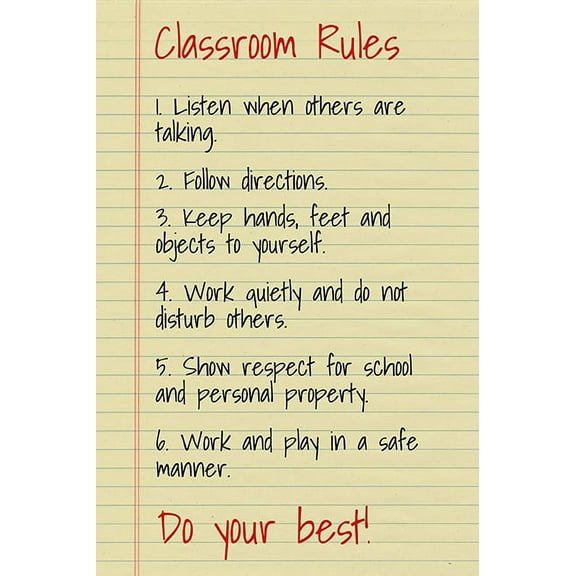 Classroom Rules
1. Listen when others are
talking.
2. Follow directions.
3. Keep hands, feet and
objects to yourself.
4. Work quietly and do not
disturb others.
5. Show respect for school
and personal property.
6. Work and play in a safe
manner.
Do your best!